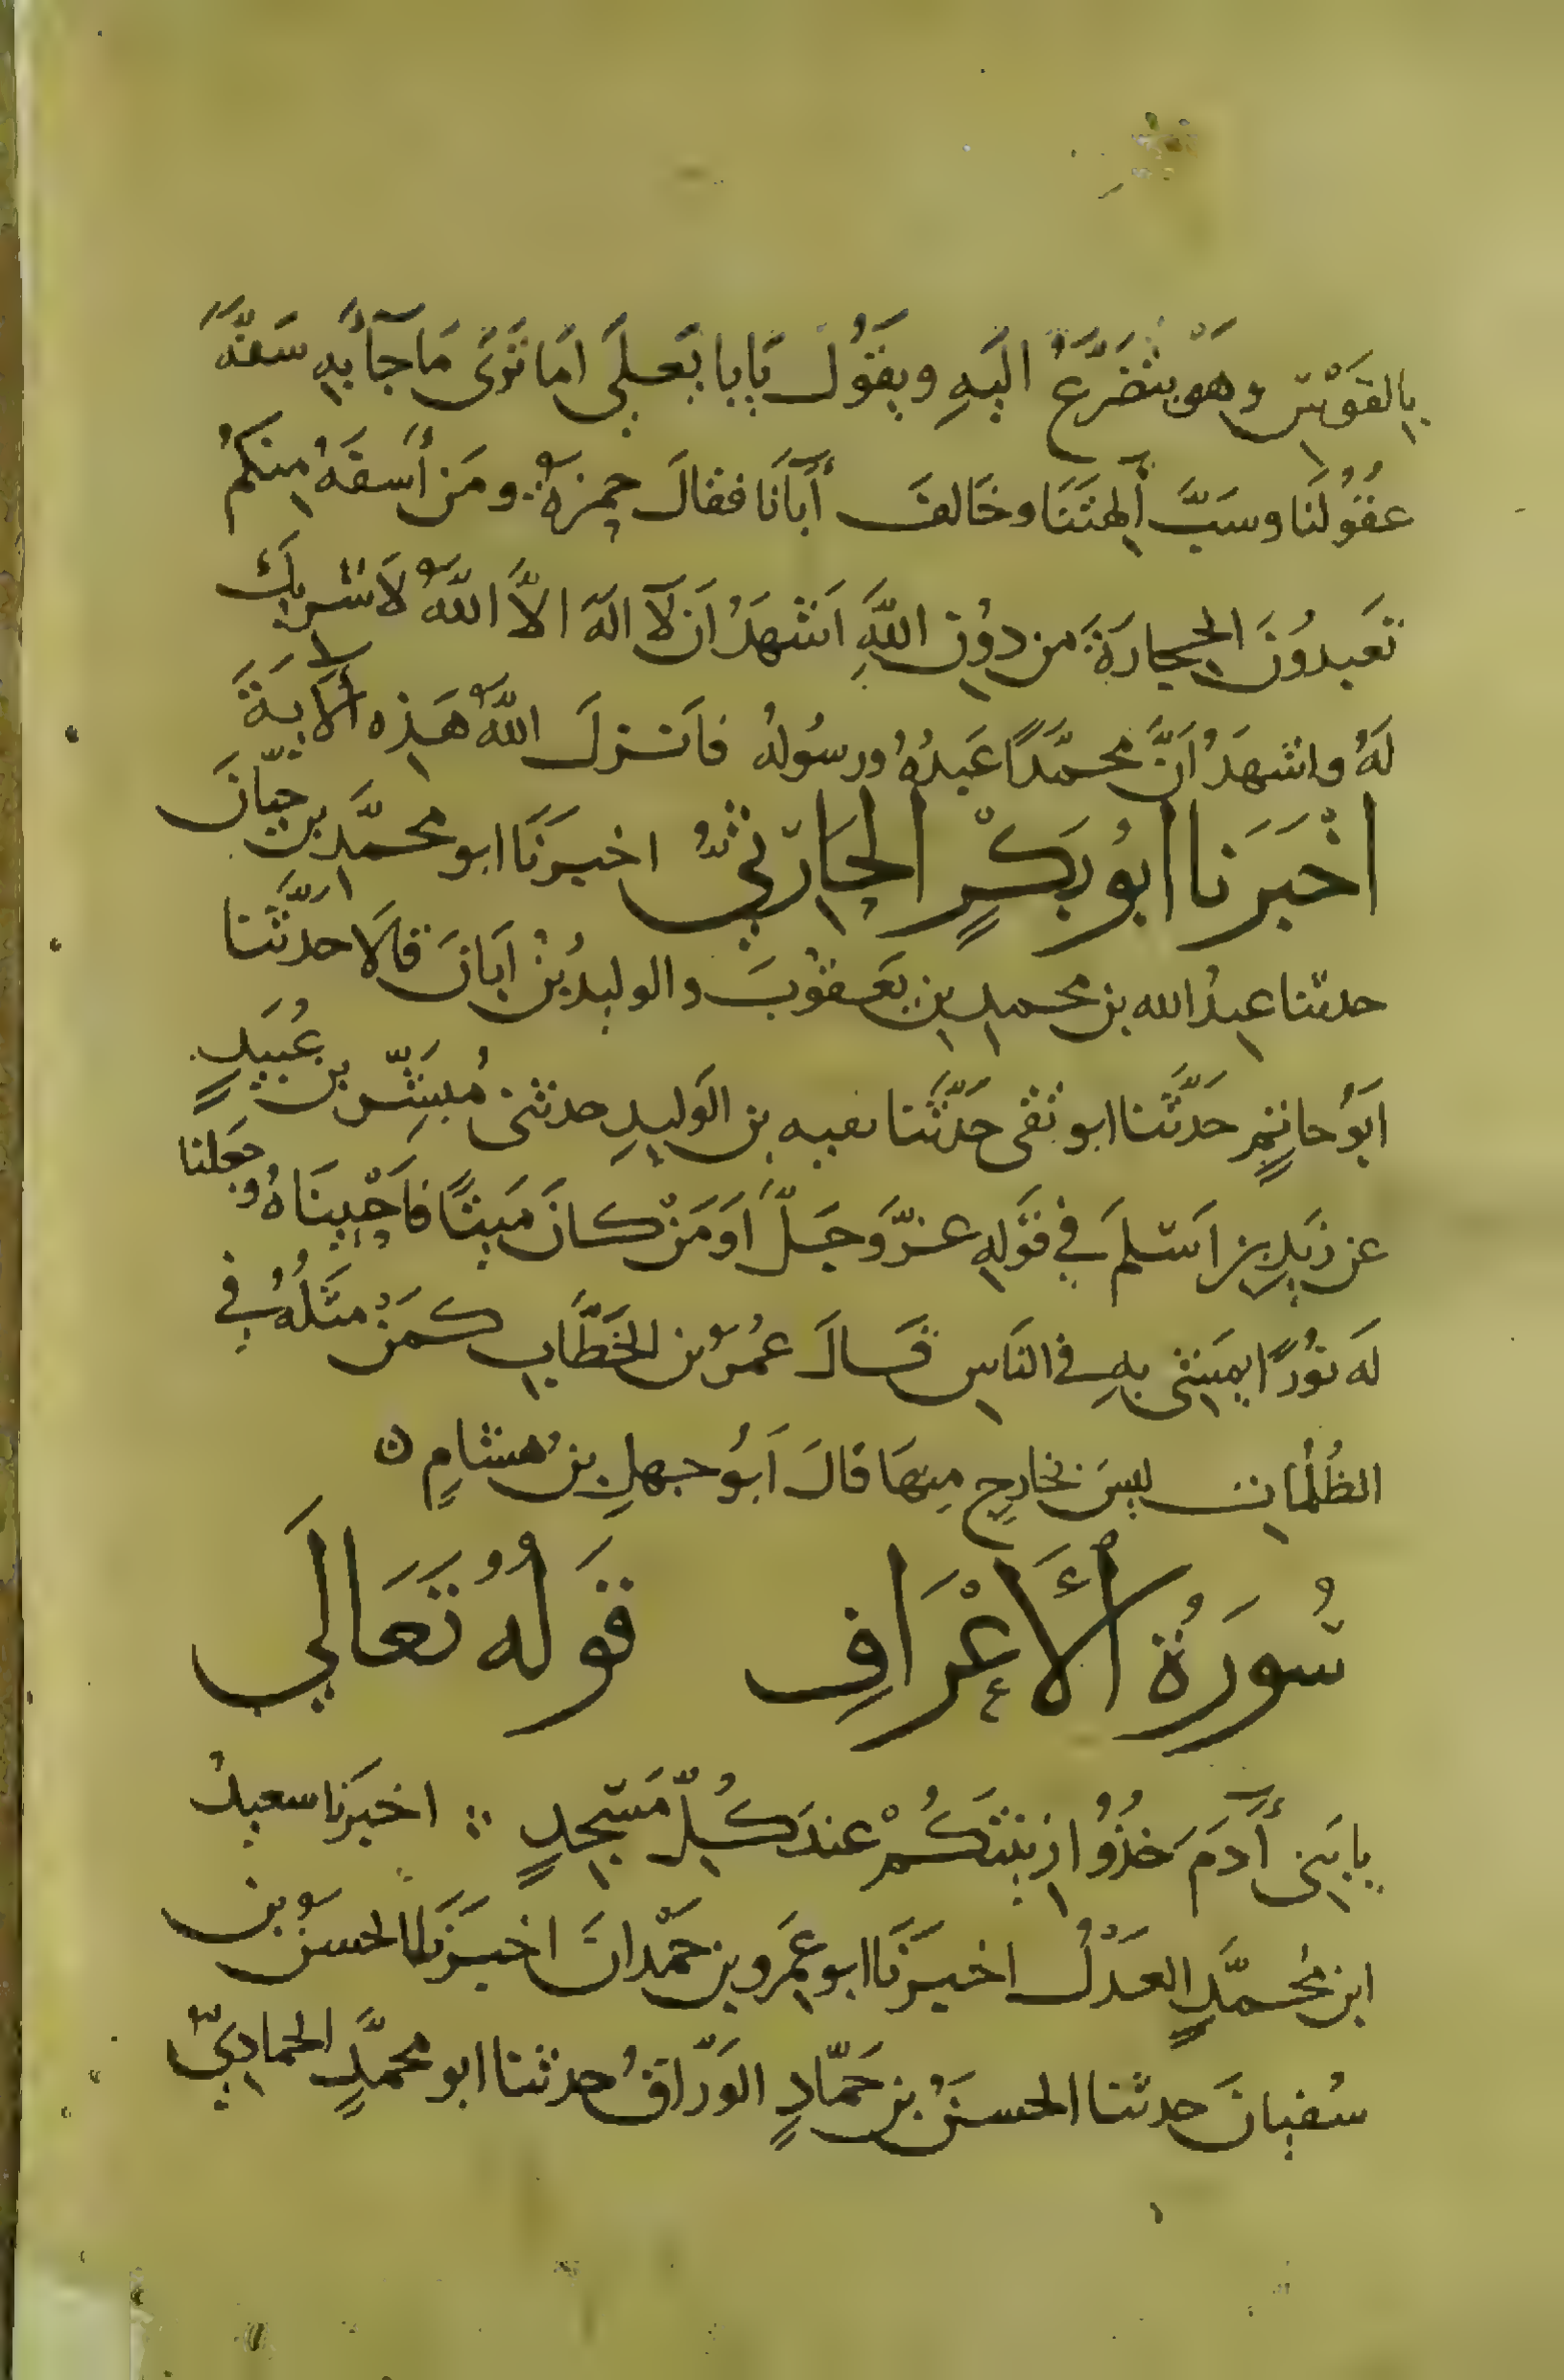 بِالقَوْسِ وهوَ يَتَضَرَّعُ اليَهِ ويَقُولُ يَابا يَعلِي امَا تَرَى مَا جَآ بِهِ سَفَّهَ
عقُولَنا وسَبَّ ألِهتَنَا وخَالفَ أبآنَا فقالَ حمزةُ ومَن أسفَهُ مِنكُم
تَعبدُونَ الحِجارَةَ من دوُنِ اللَّهِ اَشهَدُ ان لآ الهَ الاَّ اللَّهُ لاَ شريكَ
لَهُ واشهَدُ اَنَّ محمَّدًا عَبدُهُ ورسُولهُ فاَنزلَ اللَّهُ هَذِهِ الآيةَ
اخْبَرَنا ابُو بَكْرٍ الحَارِثيُّ اخبرَنَا ابو محمَّدِ بن حيَّانَ
حدثنا عبدُ الله بن محمدِ بنِ يَعقوُبَ والوليدُ بْنُ اَبَانَ قالاَ حدَّثَنا
ابَوُ حاتمٍ حدَّثَنا ابو تقى حَدَّثَنا بقيه بن الوَليدِ حدثنى مُبَشّر بن عُبَيدٍ
عن زيَدِ بن اَسْلمَ في قَولهِ عزَّوَجَلَّ اَوَمَنْ كانَ مَيتًا فاَحْيينَاهُ وجَعلنا
لَه نوُرًا يمَشِى بِهِ فى النَاسِ قالَ عمُرُ بن الخَطَّابِ كمَنْ مثَلُهُ في
الظُلُمَاتِ ليسَ بخَارجٍ مِنهَا قالَ اَبوُ جهلِ بن هشامٍ ه
سُورَةُ الأَعْرَافِ قَولهُ تَعَالَى
يا بَنِى أدَمَ خذوُا زينَتَكُمْ عندَ كُلِّ مَسْجِدٍ اخبَرنا سعيدُ
ابن مُحمَّدٍ العَدْلُ اخبرَنَا ابو عَمرِو بن حَمْدانَ اخبرَنا الحسنُ بن
سُفيانَ حدثنا الحسَنُ بن حَمَّادٍ الوَرَّاقُ حدثنا ابو محمَّدٍ الحمادِيُّ